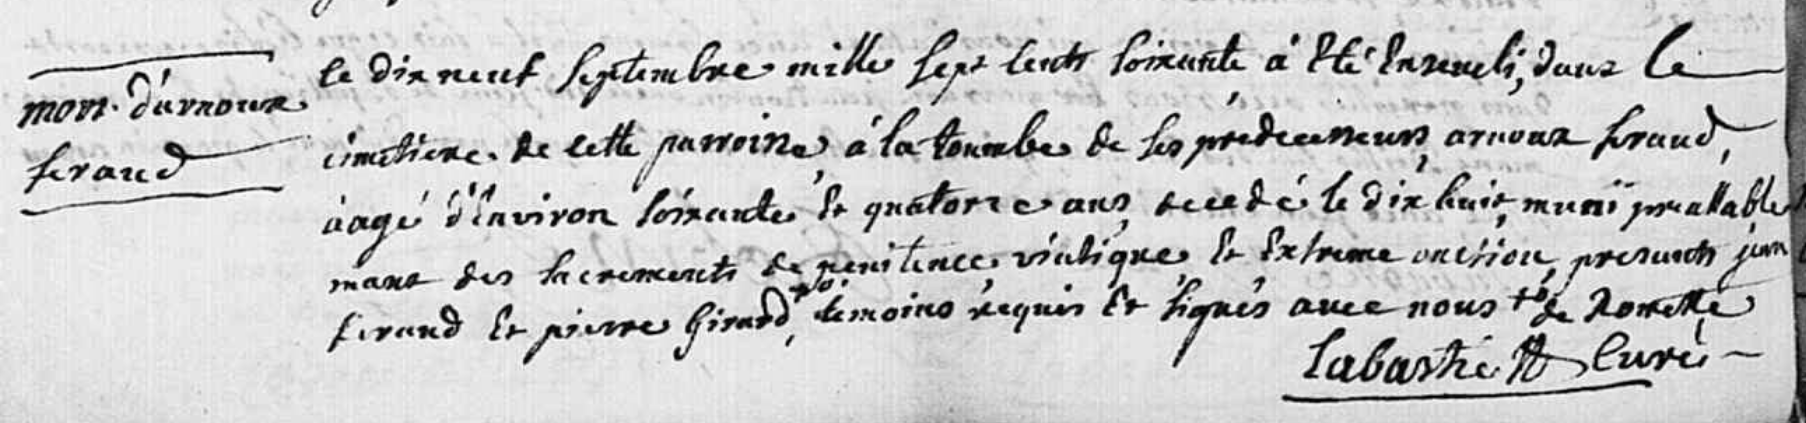 mort d'arnoux
feraud
le dix neuf septembre mille sept cents soixante à eté enseveli, dans le
cimetiere de cette parroisse, à la toumbe de ses prédecesseurs, arnoux feraud,
àagé d'environ soixante et quatorze ans, decedé le dix huit, muni preallable
mant des sacrements de penitence viatique et extreme onction, presents jean
feraud et pierre girard, temoins requis et signés avec nous
labastie curé